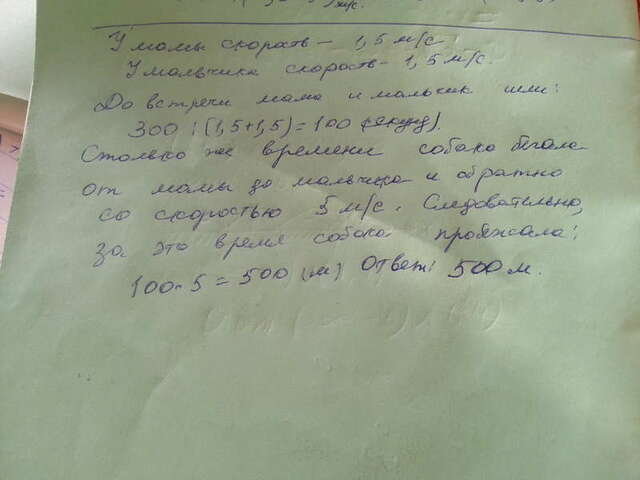 м/с.
У мамы скорость – 1,5 м/с.
У мальчика скорость – 1,5 м/с.
До встречи мама и мальчик шли:
300 : (1,5+1,5) = 100 (секунд).
Столько же времени собака бегала
от мамы до мальчика и обратно
со скоростью 5 м/с. Следовательно,
за это время собака пробежала:
100 · 5 = 500 (м) Ответ: 500 м.